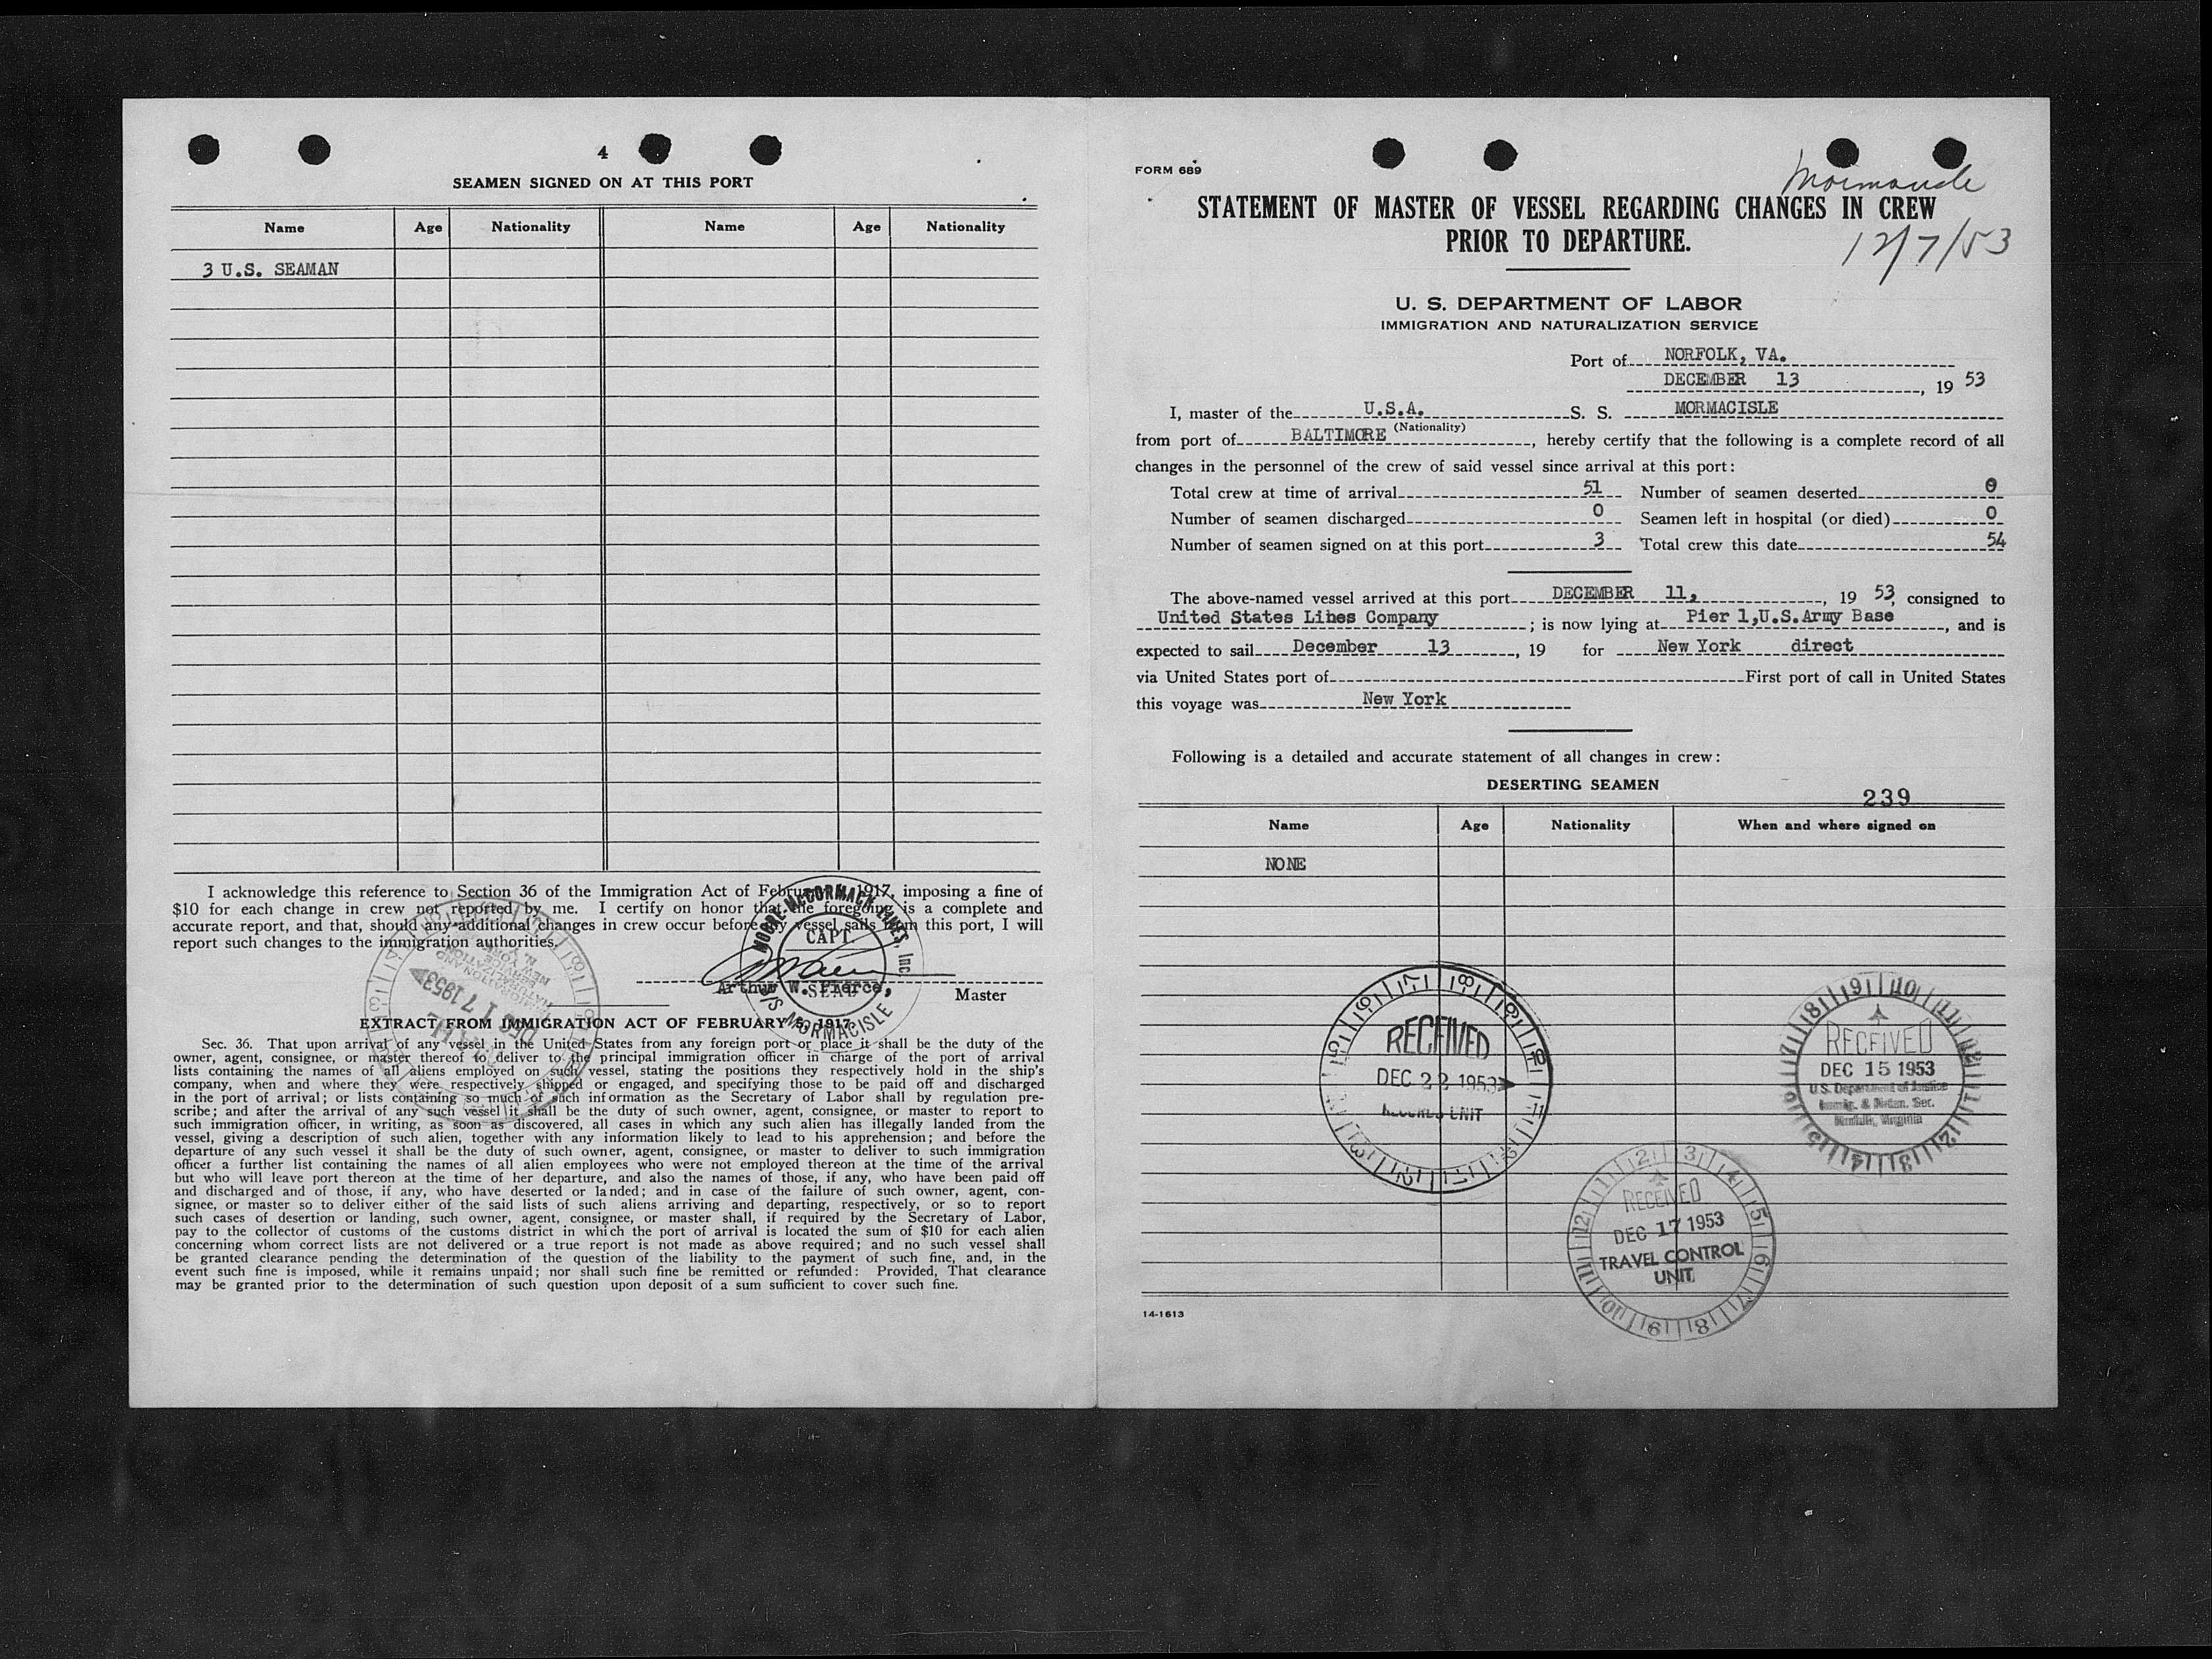 4
SEAMEN SIGNED ON AT THIS PORT
Name Age Nationality Name Age Nationality
3 U.S. SEAMAN
I acknowledge this reference to Section 36 of the Immigration Act of February 5, 1917, imposing a fine of
$10 for each change in crew not reported by me. I certify on honor that the foregoing is a complete and
accurate report, and that, should any additional changes in crew occur before my vessel sails from this port, I will
report such changes to the immigration authorities.
MOORE-McCORMACK LINES, Inc.
CAPT.
SEAL
S/S MORMACISLE
Arthur W. Pierce,
Master
IMMIGRATION AND
NATURALIZATION
SERVICE
NEW YORK
N. Y.
DEC 17 1953
EXTRACT FROM IMMIGRATION ACT OF FEBRUARY 5, 1917
Sec. 36. That upon arrival of any vessel in the United States from any foreign port or place it shall be the duty of the
owner, agent, consignee, or master thereof to deliver to the principal immigration officer in charge of the port of arrival
lists containing the names of all aliens employed on such vessel, stating the positions they respectively hold in the ship's
company, when and where they were respectively shipped or engaged, and specifying those to be paid off and discharged
in the port of arrival; or lists containing so much of such information as the Secretary of Labor shall by regulation pre-
scribe; and after the arrival of any such vessel it shall be the duty of such owner, agent, consignee, or master to report to
such immigration officer, in writing, as soon as discovered, all cases in which any such alien has illegally landed from the
vessel, giving a description of such alien, together with any information likely to lead to his apprehension; and before the
departure of any such vessel it shall be the duty of such owner, agent, consignee, or master to deliver to such immigration
officer a further list containing the names of all alien employees who were not employed thereon at the time of the arrival
but who will leave port thereon at the time of her departure, and also the names of those, if any, who have been paid off
and discharged and of those, if any, who have deserted or landed; and in case of the failure of such owner, agent, con-
signee, or master so to deliver either of the said lists of such aliens arriving and departing, respectively, or so to report
such cases of desertion or landing, such owner, agent, consignee, or master shall, if required by the Secretary of Labor,
pay to the collector of customs of the customs district in which the port of arrival is located the sum of $10 for each alien
concerning whom correct lists are not delivered or a true report is not made as above required; and no such vessel shall
be granted clearance pending the determination of the question of the liability to the payment of such fine, and, in the
event such fine is imposed, while it remains unpaid; nor shall such fine be remitted or refunded: Provided, That clearance
may be granted prior to the determination of such question upon deposit of a sum sufficient to cover such fine.
FORM 689
STATEMENT OF MASTER OF VESSEL REGARDING CHANGES IN CREW
PRIOR TO DEPARTURE.
12/7/53
U. S. DEPARTMENT OF LABOR
IMMIGRATION AND NATURALIZATION SERVICE
Port of NORFOLK, VA.
DECEMBER 13, 19 53
I, master of the U.S.A. S. S. MORMACISLE
(Nationality)
from port of BALTIMORE, hereby certify that the following is a complete record of all
changes in the personnel of the crew of said vessel since arrival at this port:
Total crew at time of arrival 51 Number of seamen deserted 0
Number of seamen discharged 0 Seamen left in hospital (or died) 0
Number of seamen signed on at this port 3 Total crew this date 54
The above-named vessel arrived at this port DECEMBER 11, , 19 53, consigned to
United States Lines Company ; is now lying at Pier 1,U.S.Army Base, and is
expected to sail December 13, 19 for New York direct
via United States port of First port of call in United States
this voyage was New York
Following is a detailed and accurate statement of all changes in crew:
DESERTING SEAMEN
239
Name Age Nationality When and where signed on
NONE
RECEIVED
DEC 22 1953
RECORDS UNIT
RECEIVED
DEC 15 1953
U.S. Department of Justice
Immig. & Natzn. Ser.
Norfolk, Virginia
RECEIVED
DEC 17 1953
TRAVEL CONTROL
UNIT
14-1613